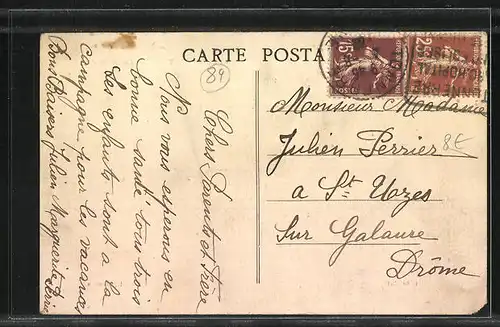 CARTE POSTA
89
Chers Parents et Frère
Nous vous esperons en
bonne santé tous trois
Les enfants sont a la
campagne pour les vacances
Bons Baisers Julien Marguerite
15
25
Monsieur Madame
Julien Perrier
8E
a St Uzes
Sur Galaure
Drôme